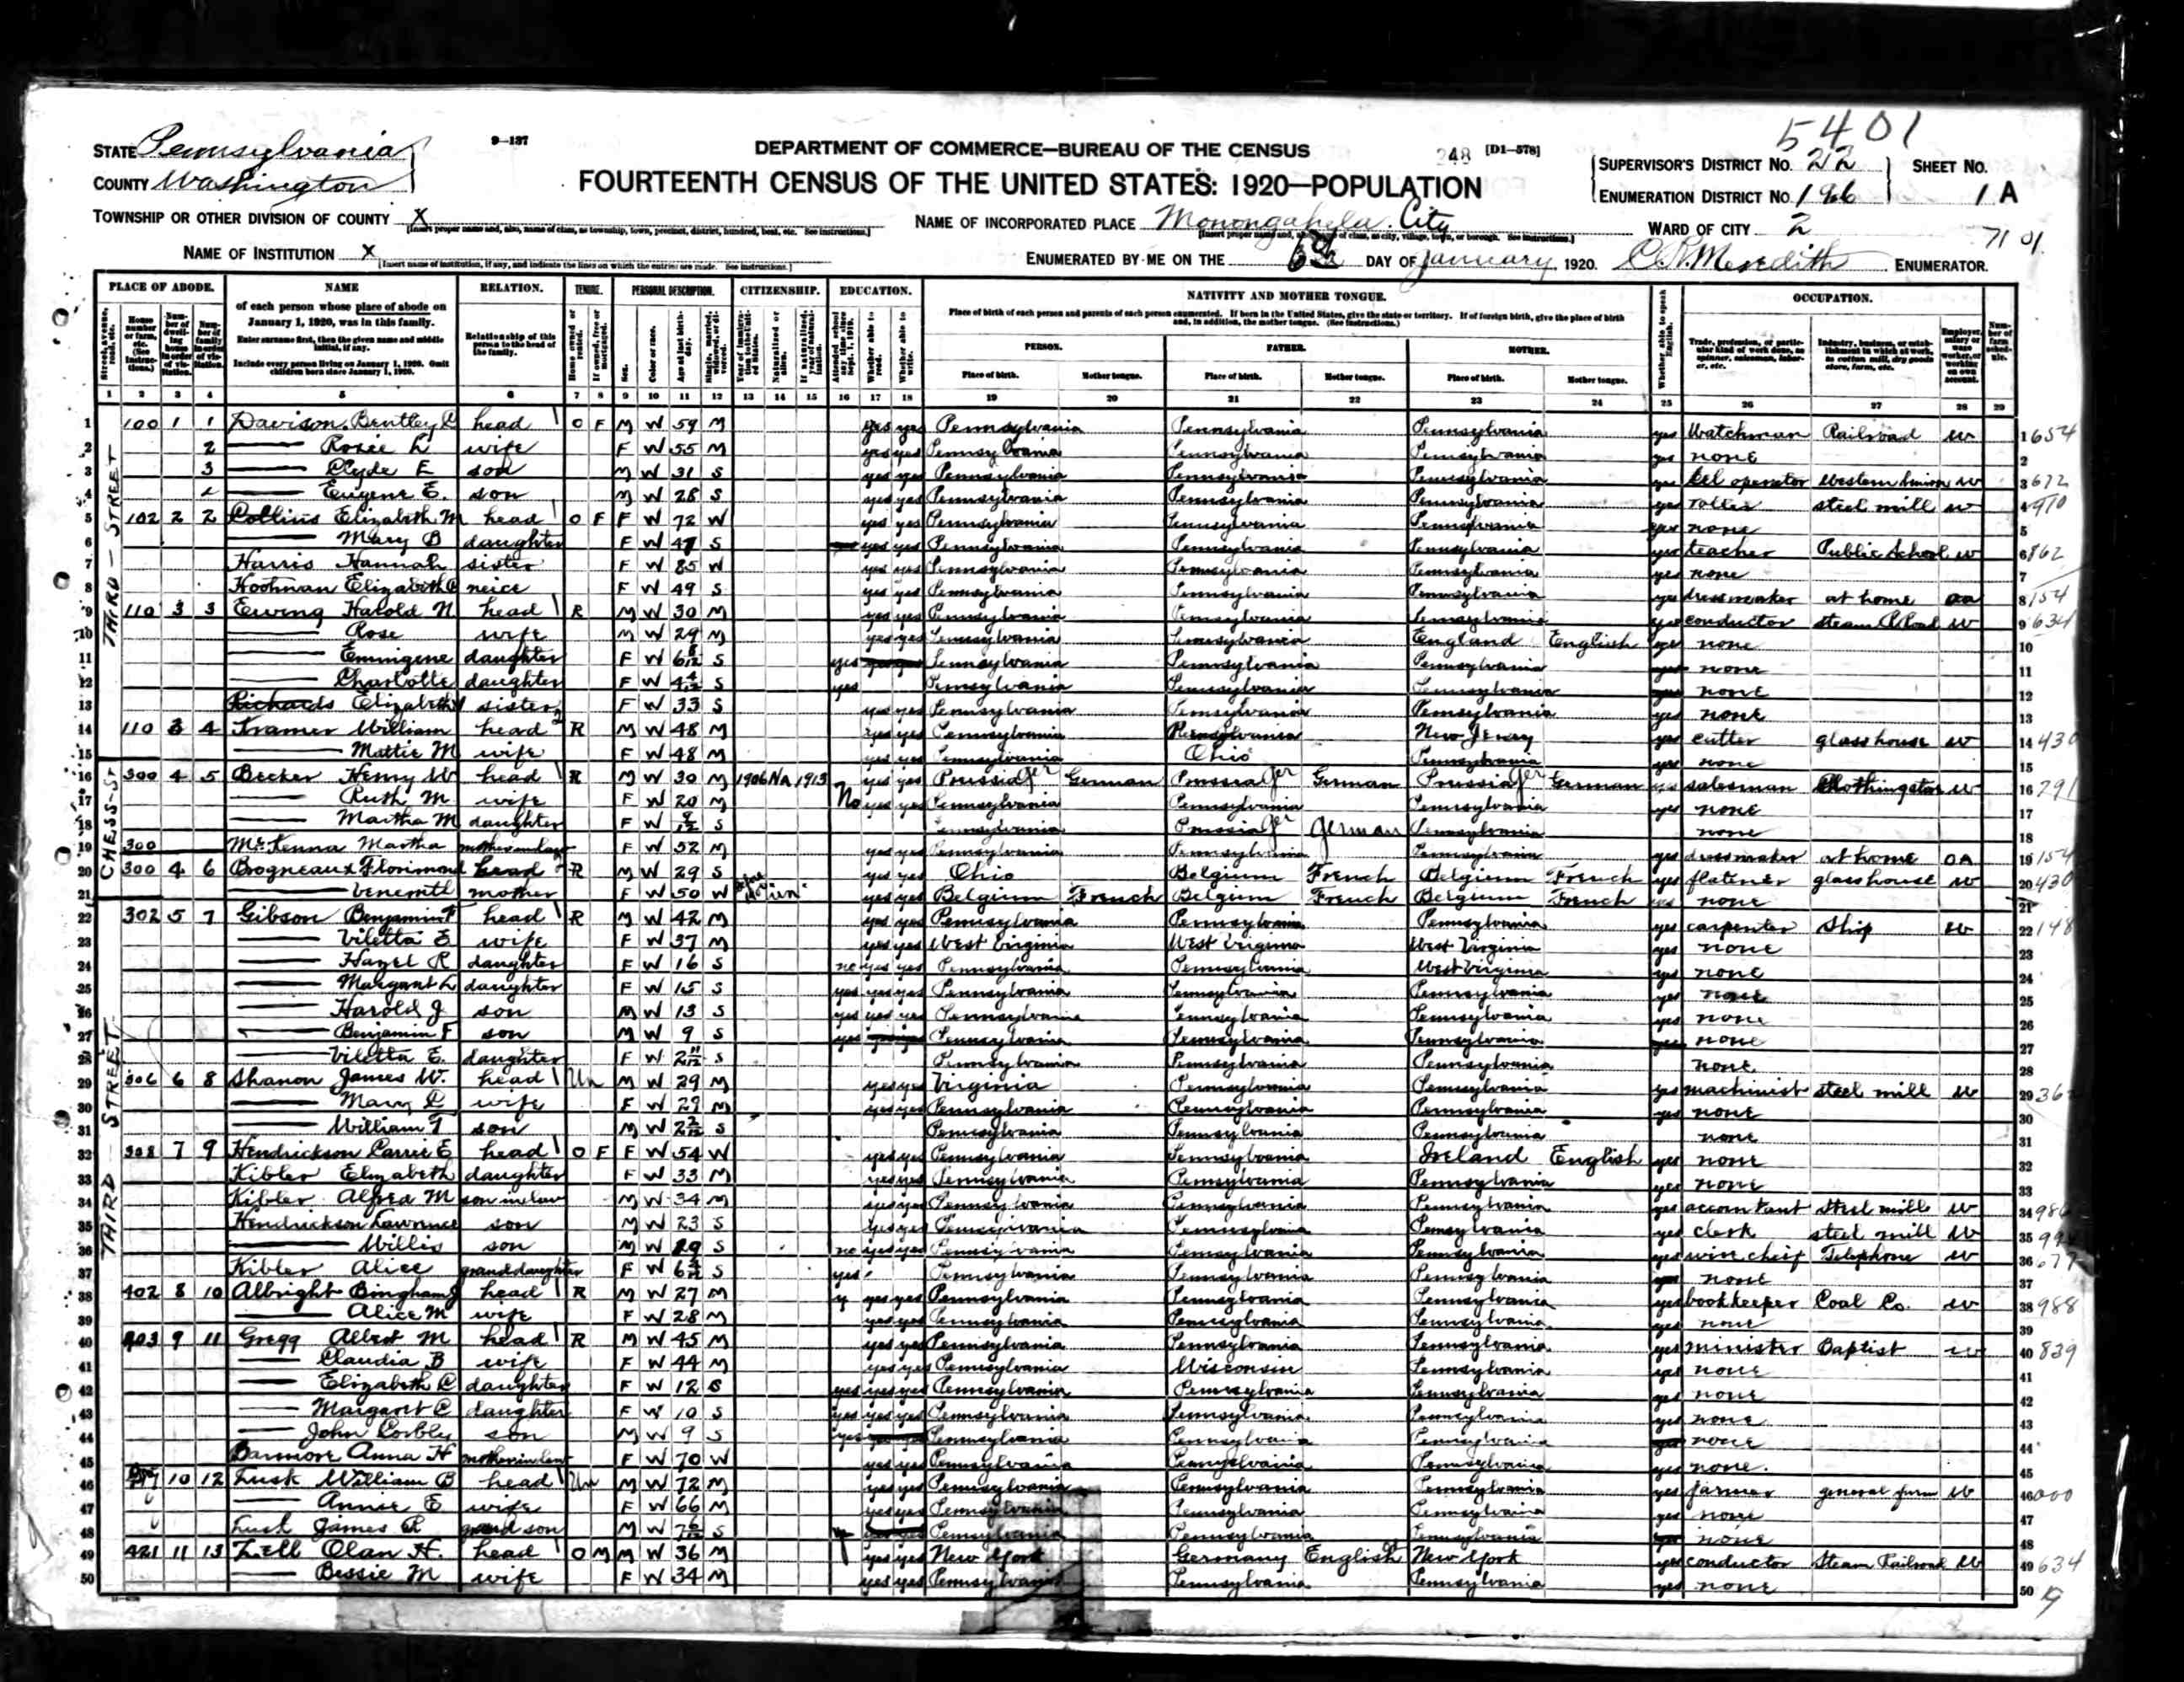 5401
STATE Pennsylvania
9-137
DEPARTMENT OF COMMERCE—BUREAU OF THE CENSUS
248 [D1-578]
SUPERVISOR'S DISTRICT No. 22 SHEET No.
COUNTY Washington
FOURTEENTH CENSUS OF THE UNITED STATES: 1920—POPULATION
ENUMERATION DISTRICT No. 196 1 A
TOWNSHIP OR OTHER DIVISION OF COUNTY X
NAME OF INCORPORATED PLACE Monongahela City
WARD OF CITY 2
7101
[Insert proper name and, also, name of class, as township, town, precinct, district, hundred, beat, etc. See instructions.]
NAME OF INSTITUTION X
[Insert name of institution, if any, and indicate the lines on which the entries are made. See instructions.]
ENUMERATED BY ME ON THE 6th DAY OF January, 1920. ENUMERATOR.
PLACE OF ABODE. NAME RELATION. TENURE. PERSONAL DESCRIPTION. CITIZENSHIP. EDUCATION. NATIVITY AND MOTHER TONGUE. OCCUPATION.
of each person whose place of abode on January 1, 1920, was in this family.
Enter surname first, then the given name and middle initial, if any.
Include every person living on January 1, 1920. Omit children born since January 1, 1920.
Relationship of this person to the head of the family.
Place of birth of each person and parents of each person enumerated. If born in the United States, give the state or territory. If of foreign birth, give the place of birth and, in addition, the mother tongue. (See instructions.)
PERSON. FATHER. MOTHER.
Place of birth. Mother tongue. Place of birth. Mother tongue. Place of birth. Mother tongue.
1 2 3 4 5 6 7 8 9 10 11 12 13 14 15 16 17 18 19 20 21 22 23 24 25 26 27 28 29
THIRD - STREET
1 100 1 1 Davison, Bentley head O F M W 59 M yes yes Pennsylvania Pennsylvania Pennsylvania yes Watchman Railroad W 1 654
2 2 — Rosie L wife F W 55 M yes yes Pennsylvania Pennsylvania Pennsylvania yes none 2
3 3 — Clyde E son M W 31 S yes yes Pennsylvania Pennsylvania Pennsylvania yes tel operator Western Union W 3 672
4 — Eugene E. son M W 28 S yes yes Pennsylvania Pennsylvania Pennsylvania yes roller steel mill W 4 910
5 102 2 2 Collins Elizabeth M head O F F W 72 W yes yes Pennsylvania Pennsylvania Pennsylvania yes none 5
6 — Mary B daughter F W 47 S yes yes Pennsylvania Pennsylvania Pennsylvania yes teacher Public School W 6 862
7 Harris Hannah sister F W 85 W yes yes Pennsylvania Pennsylvania Pennsylvania yes none 7
8 Hootman Elizabeth neice F W 49 S yes yes Pennsylvania Pennsylvania Pennsylvania yes dressmaker at home oa 8 154
9 110 3 3 Ewing Harold N head R M W 30 M yes yes Pennsylvania Pennsylvania Pennsylvania yes conductor steam W 9 634
10 — Rose wife M W 29 M yes yes Pennsylvania Pennsylvania England English yes none 10
11 — Emmigene daughter F W S yes Pennsylvania Pennsylvania Pennsylvania none 11
12 — Charlotte daughter F W S yes Pennsylvania Pennsylvania Pennsylvania none 12
13 Richards Elizabeth sister F W 33 S yes yes Pennsylvania Pennsylvania Pennsylvania yes none 13
14 110 3 4 Kramer William head R M W 48 M yes yes Pennsylvania Pennsylvania New Jersey yes cutter glass house W 14 430
15 — Mattie M wife F W 48 M yes yes Pennsylvania Ohio Pennsylvania yes none 15
CHESS - ST
16 300 4 5 Becker Henry W head R M W 30 M 1906 Na 1913 yes yes Prussia Ger German Prussia Ger German Prussia Ger German yes salesman Clothing store W 16 291
17 — Ruth M wife F W 20 M No yes yes Pennsylvania Pennsylvania Pennsylvania yes none 17
18 — Martha M daughter F W S Pennsylvania Prussia Ger German Pennsylvania none 18
19 300 McKenna Martha F W 52 M yes yes Pennsylvania Pennsylvania Pennsylvania yes dressmaker at home OA 19 154
20 300 4 6 Brogneaux Florimond head R M W 29 S yes yes Ohio Belgium French Belgium French yes flatener glass house W 20 430
21 — mother F W 50 W yes yes Belgium French Belgium French Belgium French yes none 21
THIRD STREET
22 302 5 7 Gibson Benjamin F head R M W 42 M yes yes Pennsylvania Pennsylvania Pennsylvania yes carpenter Ship W 22 148
23 — Viletta E wife F W 37 M yes yes West Virginia West Virginia West Virginia yes none 23
24 — Hazel R daughter F W 16 S no yes yes Pennsylvania Pennsylvania West Virginia yes none 24
25 — Margaret L daughter F W 15 S yes yes yes Pennsylvania Pennsylvania Pennsylvania yes none 25
26 — Harold J son M W 13 S yes yes yes Pennsylvania Pennsylvania Pennsylvania yes none 26
27 — Benjamin F son M W 9 S yes Pennsylvania Pennsylvania Pennsylvania none 27
28 — Viletta E. daughter F W 2 11/12 S Pennsylvania Pennsylvania Pennsylvania none 28
29 306 6 8 Shanon James W. head Un M W 29 M yes yes Virginia Pennsylvania Pennsylvania yes machinist steel mill W 29 362
30 — Mary C wife F W 29 M yes yes Pennsylvania Pennsylvania Pennsylvania yes none 30
31 — William T son M W S Pennsylvania Pennsylvania Pennsylvania none 31
32 308 7 9 Hendrickson Carrie E head O F F W 54 W yes yes Pennsylvania Pennsylvania Ireland English yes none 32
33 Kibler Elizabeth daughter F W 33 M yes yes Pennsylvania Pennsylvania Pennsylvania yes none 33
34 Kibler Alfred M son in law M W 34 M yes yes Pennsylvania Pennsylvania Pennsylvania yes accountant steel mill W 34
35 Hendrickson Lawrence son M W 23 S yes yes Pennsylvania Pennsylvania Pennsylvania yes clerk steel mill W 35
36 — Willis son M W S no yes yes Pennsylvania Pennsylvania Pennsylvania yes wire chief Telephone W 36 677
37 Kibler Alice granddaughter F W S yes Pennsylvania Pennsylvania Pennsylvania none 37
38 402 8 10 Albright Bingham J head R M W 27 M y yes yes Pennsylvania Pennsylvania Pennsylvania yes bookkeeper Coal Co. W 38 988
39 — Alice M wife F W 28 M yes yes Pennsylvania Pennsylvania Pennsylvania yes none 39
40 403 9 11 Gregg Albert M head R M W 45 M yes yes Pennsylvania Pennsylvania Pennsylvania yes minister Baptist W 40 839
41 — Claudia B wife F W 44 M yes yes Pennsylvania Wisconsin Pennsylvania yes none 41
42 — Elizabeth C daughter F W 12 S yes yes yes Pennsylvania Pennsylvania Pennsylvania yes none 42
43 — Margaret C daughter F W 10 S yes yes yes Pennsylvania Pennsylvania Pennsylvania yes none 43
44 — John Corbly son M W 9 S yes Pennsylvania Pennsylvania Pennsylvania none 44
45 Barmore Anna H mother in law F W 70 W yes yes Pennsylvania Pennsylvania Pennsylvania yes none. 45
46 10 12 Lusk William B head Un M W 72 M yes yes Pennsylvania Pennsylvania Pennsylvania yes farmer general farm W 46 000
47 — Annie E wife F W 66 M yes yes Pennsylvania Pennsylvania Pennsylvania yes none 47
48 Lusk James R grand son M W S Pennsylvania Pennsylvania Pennsylvania none 48
49 421 11 13 Zell Olan H. head O M M W 36 M yes yes New York Germany English New York yes conductor Steam Railroad W 49 634
50 — Bessie M wife F W 34 M yes yes Pennsylvania Pennsylvania Pennsylvania yes none 50